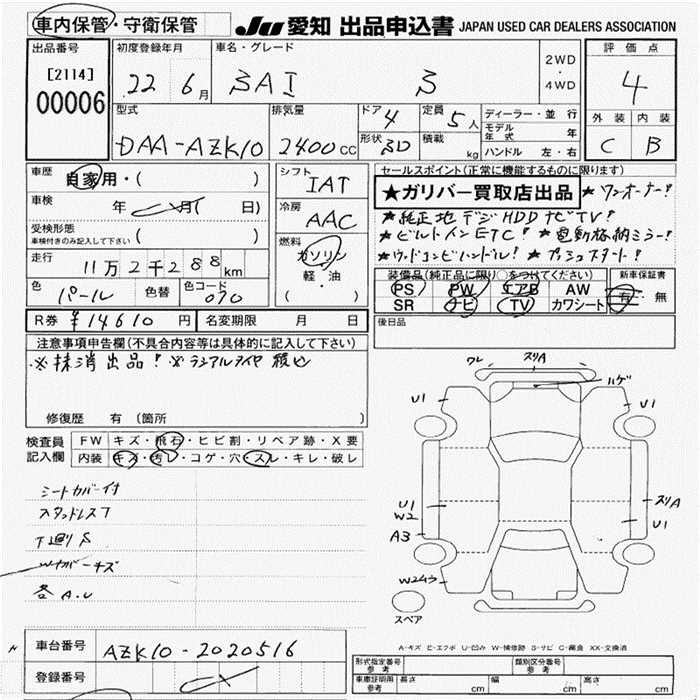 車内保管・守衛保管
JU 愛知 出品申込書 JAPAN USED CAR DEALERS ASSOCIATION
出品番号
[2114]
00006
初度登録年月
22 6月
車名・グレード
SAI S
2WD
・
4WD
評価点
4
外装 内装
C B
型式
DAA-AZK10
排気量
2400CC
ドア 4
形状 5D
定員 5人
積載 kg
ディーラー・並行
モデル年式 年
ハンドル 左・右
車歴
自家用・( )
車検
年 月( 日)
受検形態
車検付きのみ記入して下さい ( )
走行
11万2千288km
色 パール 色替 色コード 070
R券 ¥14610円 名変期限 月 日
シフト
IAT
冷房
AAC
燃料
ガソリン
軽・油
( )
セールスポイント(正常に機能するものに限ります)
★ガリバー買取店出品 ★ワンオーナー!
★純正地デジHDDナビTV!
★ビルトインETC! ★電動格納ミラー!
★ウッドコンビハンドル! ★プッシュスタート!
装備品(純正品に限り○をつけてください)
PS PW エアB AW
SR ナビ TV カワシート
新車保証書
有・無
後日品
注意事項申告欄(不具合内容等は具体的に記入して下さい)
※抹消出品! ※ラジアルタイヤ積込
修復歴 有 (箇所 )
検査員
記入欄
FW キズ・飛石・ヒビ割・リペア跡・X要
内装 キズ・汚レ・コゲ・穴・スレ・キレ・破レ
シートカバー付
スタッドレス7
下廻りS
Wカバーキズ
各A.U
ワレ スリA
ハゲ
U1 U1
U1
W2
A3
スリA
U1
W2ムラ
スペア
A-キズ E-エクボ U-凹み W-補修跡 S-サビ C-腐食 XX-交換済
車台番号
AZK10-2020516
登録番号
形式指定番号
参考
類別区分番号
参考
車庫証明用
参考
長さ cm 幅 cm 高さ cm